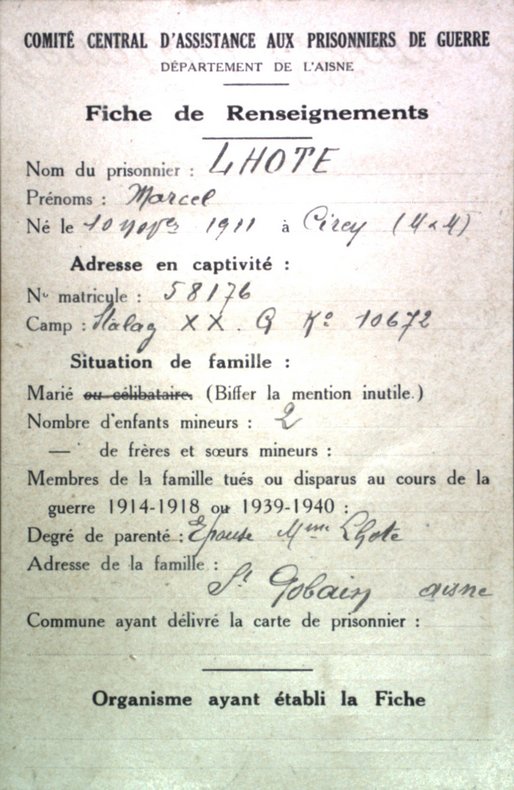 COMITÉ CENTRAL D'ASSISTANCE AUX PRISONNIERS DE GUERRE
DÉPARTEMENT DE L'AISNE
Fiche de Renseignements
Nom du prisonnier : LHOTE
Prénoms : Marcel
Né le 10 novbre 1911 à Cirey (M & M)
Adresse en captivité :
No matricule : 58176
Camp : Stalag XX. Ko 10672
Situation de famille :
Marié ou célibataire. (Biffer la mention inutile.)
Nombre d'enfants mineurs : 2
— de frères et sœurs mineurs :
Membres de la famille tués ou disparus au cours de la
guerre 1914-1918 ou 1939-1940 :
Degré de parenté : Epouse Mme Lhote
Adresse de la famille :
St Gobain aisne
Commune ayant délivré la carte de prisonnier :
Organisme ayant établi la Fiche